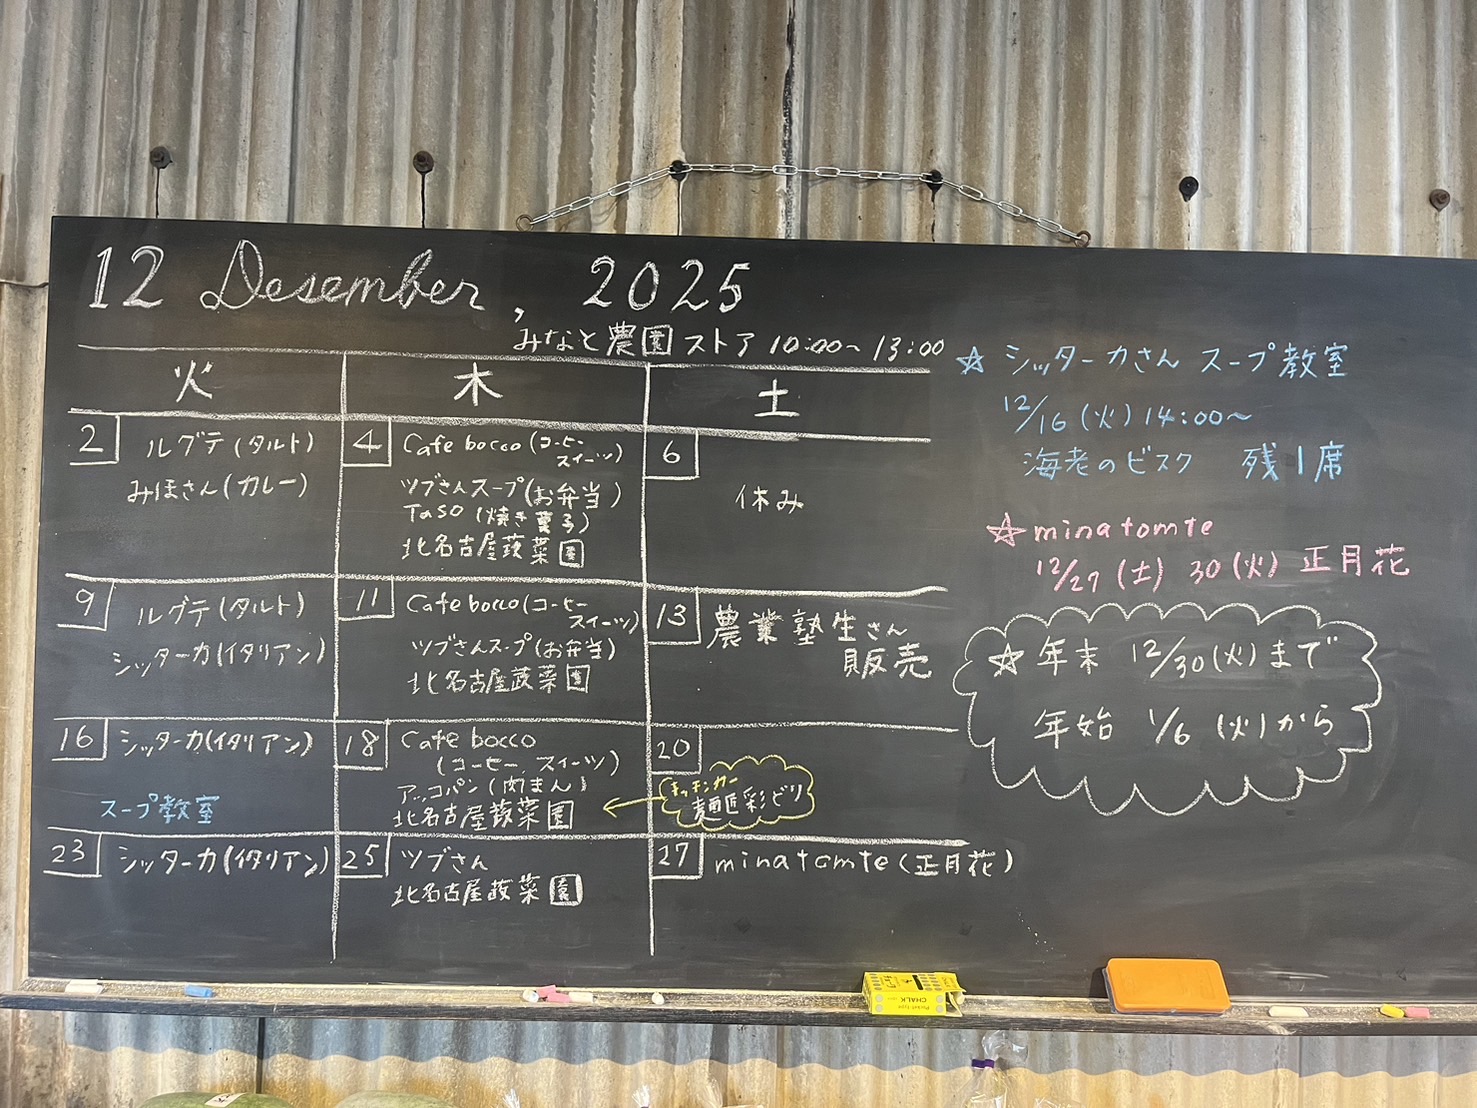 12 Desember, 2025
みなと農園ストア 10:00~13:00
火
木
土
2
ルグテ(タルト)
みほさん(カレー)
4
Cafe bocco(コーヒー
スイーツ)
ツブさんスープ(お弁当)
Taso (焼き菓子)
北名古屋蔬菜園
6
休み
9
ルグテ(タルト)
シッターカ(イタリアン)
11
Cafe bocco(コーヒー
スイーツ)
ツブさんスープ(お弁当)
北名古屋蔬菜園
13
農業塾生さん
販売
16
シッターカ(イタリアン)
スープ教室
18
Cafe bocco
(コーヒー、スイーツ)
アッコパン(肉まん)
北名古屋蔬菜園
20
キッチンカー
麺匠彩どり
23
シッターカ(イタリアン)
25
ツブさん
北名古屋蔬菜園
27
minatomte(正月花)
☆ シッターカさん スープ教室
12/16(火)14:00~
海老のビスク 残1席
☆minatomte
12/27(土) 30(火) 正月花
☆ 年末 12/30(火)まで
年始 1/6(火)から
CHALK